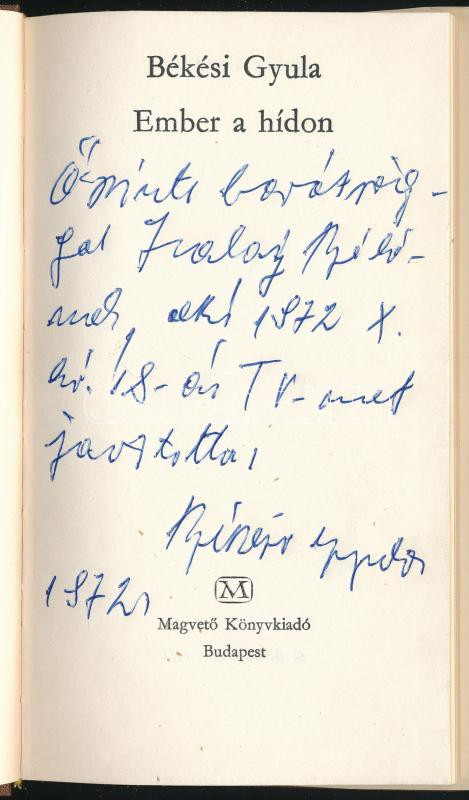 Békési Gyula
Ember a hídon
Őszinte barátság-
gal Szalay Bélá-
nak, aki 1972 X.
hó. 18-án TV-met
javította,
Békési Gyula
1972.
M
Magvető Könyvkiadó
Budapest